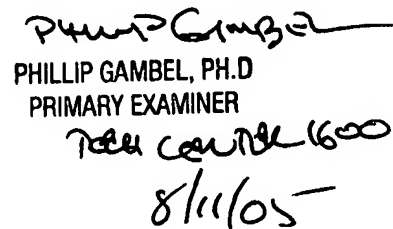 PHILLIP GAMBEL
PHILLIP GAMBEL, PH.D
PRIMARY EXAMINER
TECH CENTER 1600
8/11/05